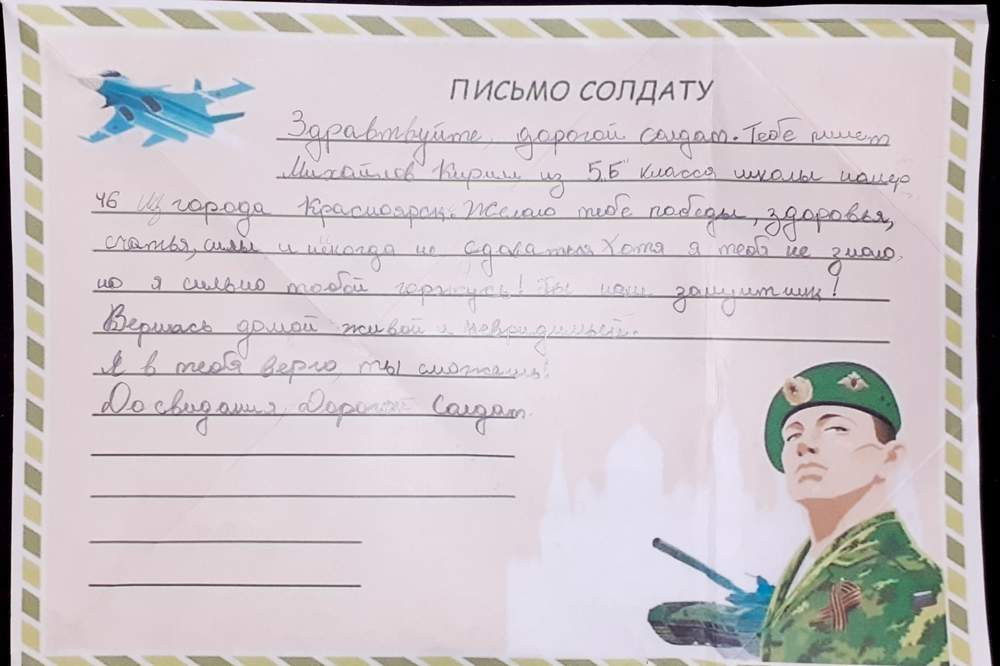 ПИСЬМО СОЛДАТУ
Здравствуйте, дорогой солдат. Тебе пишет
Михайлов Кирилл из 5 "Б" класса школы номер
46 из города Красноярск. Желаю тебе победы, здоровья,
счатья, силы и никогда не сдаваться. Хотя я тебя не знаю,
но я сильно тобой горжусь! Ты наш защитник!
Вернись домой живой и невридимый.
Я в тебя верю, ты сможешь!
До свидания, Дорогой Солдат.